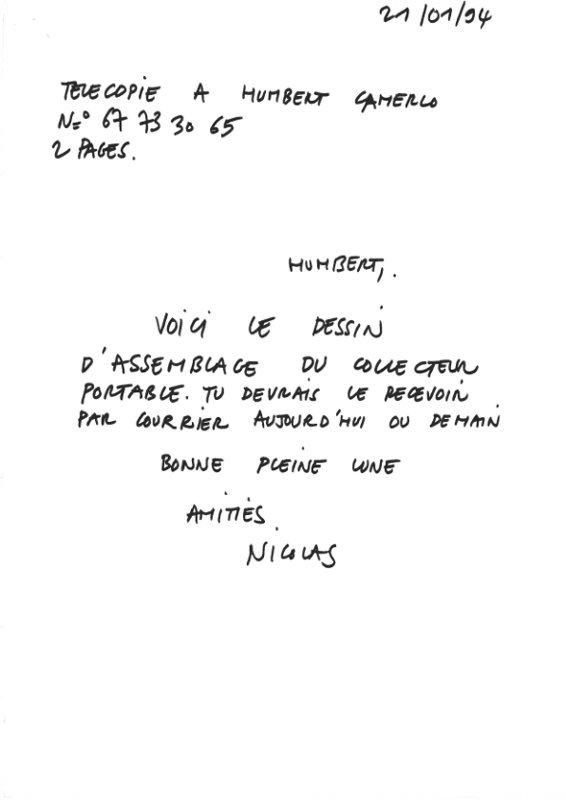 21/01/94
TELECOPIE A HUMBERT CAMERLO
N=° 67 73 30 65
2 PAGES.
HUMBERT,.
VOICI LE DESSIN
D'ASSEMBLAGE DU COLLECTEUR
PORTABLE. TU DEVRAIS LE RECEVOIR
PAR COURRIER AUJOURD'HUI OU DEMAIN
BONNE PLEINE LUNE
AMITIÉS.
NICOLAS